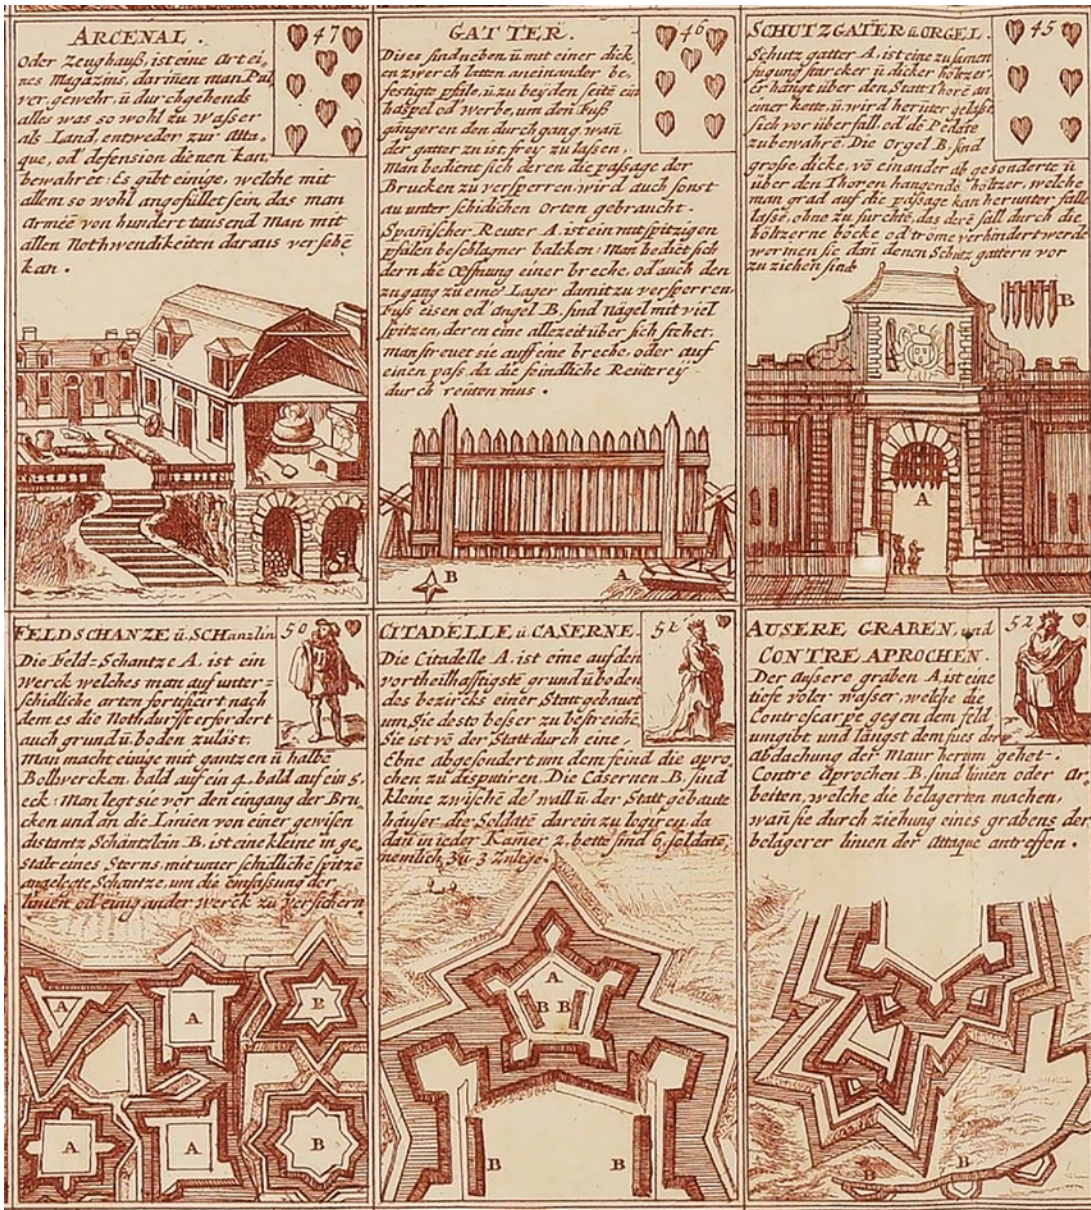 ARCENAL.
47
Oder Zeughauß, ist eine Art ei,
nes Magazins, dariñen man Pul,
ver, gewehr, ü durchgehends
alles was so wohl zu Wasser
als Land, entweder zur Atta,
que, od' defension dienen kan,
bewahret: Es gibt einige, welche mit
allem so wohl angefüllet sein, das man
Armée von hundert tausend Man mit
allen Nothwendikeiten daraus versehē
kan.
GATTER.
46
Dises sind neben ü mit einer dick,
en zwerch latten aneinander be,
festigte pfile, ü zu beyden seitē ein
haspel od' werbe, um den Fuß
gängeren den durchgang, wañ
der gatter zu ist, frey zu lassen,
Man bedient sich deren die paßage der
Brucken zu versperren, wird auch sonst
au unter schidlichen Orten gebraucht.
Spanischer Reuter A. ist ein mit spitzigen
pfälen beschlagner balcken: Man bediēt sich
dern die Oeffnung einer breche, od' auch den
zugang zu einē Lager damit zu versperren.
Fuß eisen od' angel B. sind Nägel mit viel
spitzen, deren eine allezeit über sich stehet,
man streuet sie auff eine breche, oder auf
einen paß, da die feindliche Reüterey
durch reüten mus.
B
A
SCHUTZGATER ü. ORGEL.
45
Schutz gatter A. ist eine zusamen
fügung starcker ü dicker höltzer,
Er hangt über den Statt Thorē an
einer kette, ü. wird herüter gelaßē
sich vor überfall, od' dē Pedate
zu bewahrē. Die Orgel B. sind
große dicke, vō einander abgesonderte ü
über den Thoren hangende höltzer, welche
man grad auf die paßage kan herunter fallē
laßē, ohne zu fürchtē, das derē fall durch die
höltzerne böcke od' tröme verhindert werde
worinen sie dañ denen Schutz gattern vor
zu ziehen sind.
B
A
FELDSCHANZE ü. SCHanzlin
50
Die Feld=Schantze A. ist ein
Werck welches man auf unter=
schidliche arten fortificirt nach
dem es die Nothdurfft erfordert
auch grund ü. boden zuläst.
Man macht einige mit gantzen ü halbē
Bollwercken, bald auf ein 4. bald auf ein 5.
eck: Man legt sie vor den eingang der Bru
cken und an die Linien von einer gewisen
distantz Schäntzlein B. ist eine kleine in ge,
stalt eines Sterns, mit unter schidlichē spitzē
angelegte Schantze, um die einfassung der
linien od' einig ander werck zu versichern.
A
A
B
A
A
B
CITADELLE ü. CASERNE.
51
Die Citadelle A. ist eine auf den
vortheilhafftigstē grund ü boden
des bezircks einer Statt gebauet
um Sie desto besser zu bestreichē,
Sie ist vō der Statt durch eine
Ebne abgesondert um dem feind die apro,
chen zu disputiren. Die Casernen B. sind
kleine zwischē de' wall ü der Statt gebaute
häuser, die Soldatē darein zu logiren, da
dañ in ieder Kamer 2. bette sind 6. soldatē,
nemlich 3 ü 3 Zu lege.
A
B B
B
B
AUSERE GRABEN, und
52
CONTRE APROCHEN.
Der äussere graben A. ist eine
tiefe voler wasser, welche die
Contrescarpe gegen dem feld,
umgibt und längst dem fues der
abdachung der Maur herum gehet.
Contre Aprochen B. sind linien oder ar
beiten, welche die belagerten machen,
wañ sie durch ziehung eines grabens der
belägerer linien der Attaque antreffen.
B
B